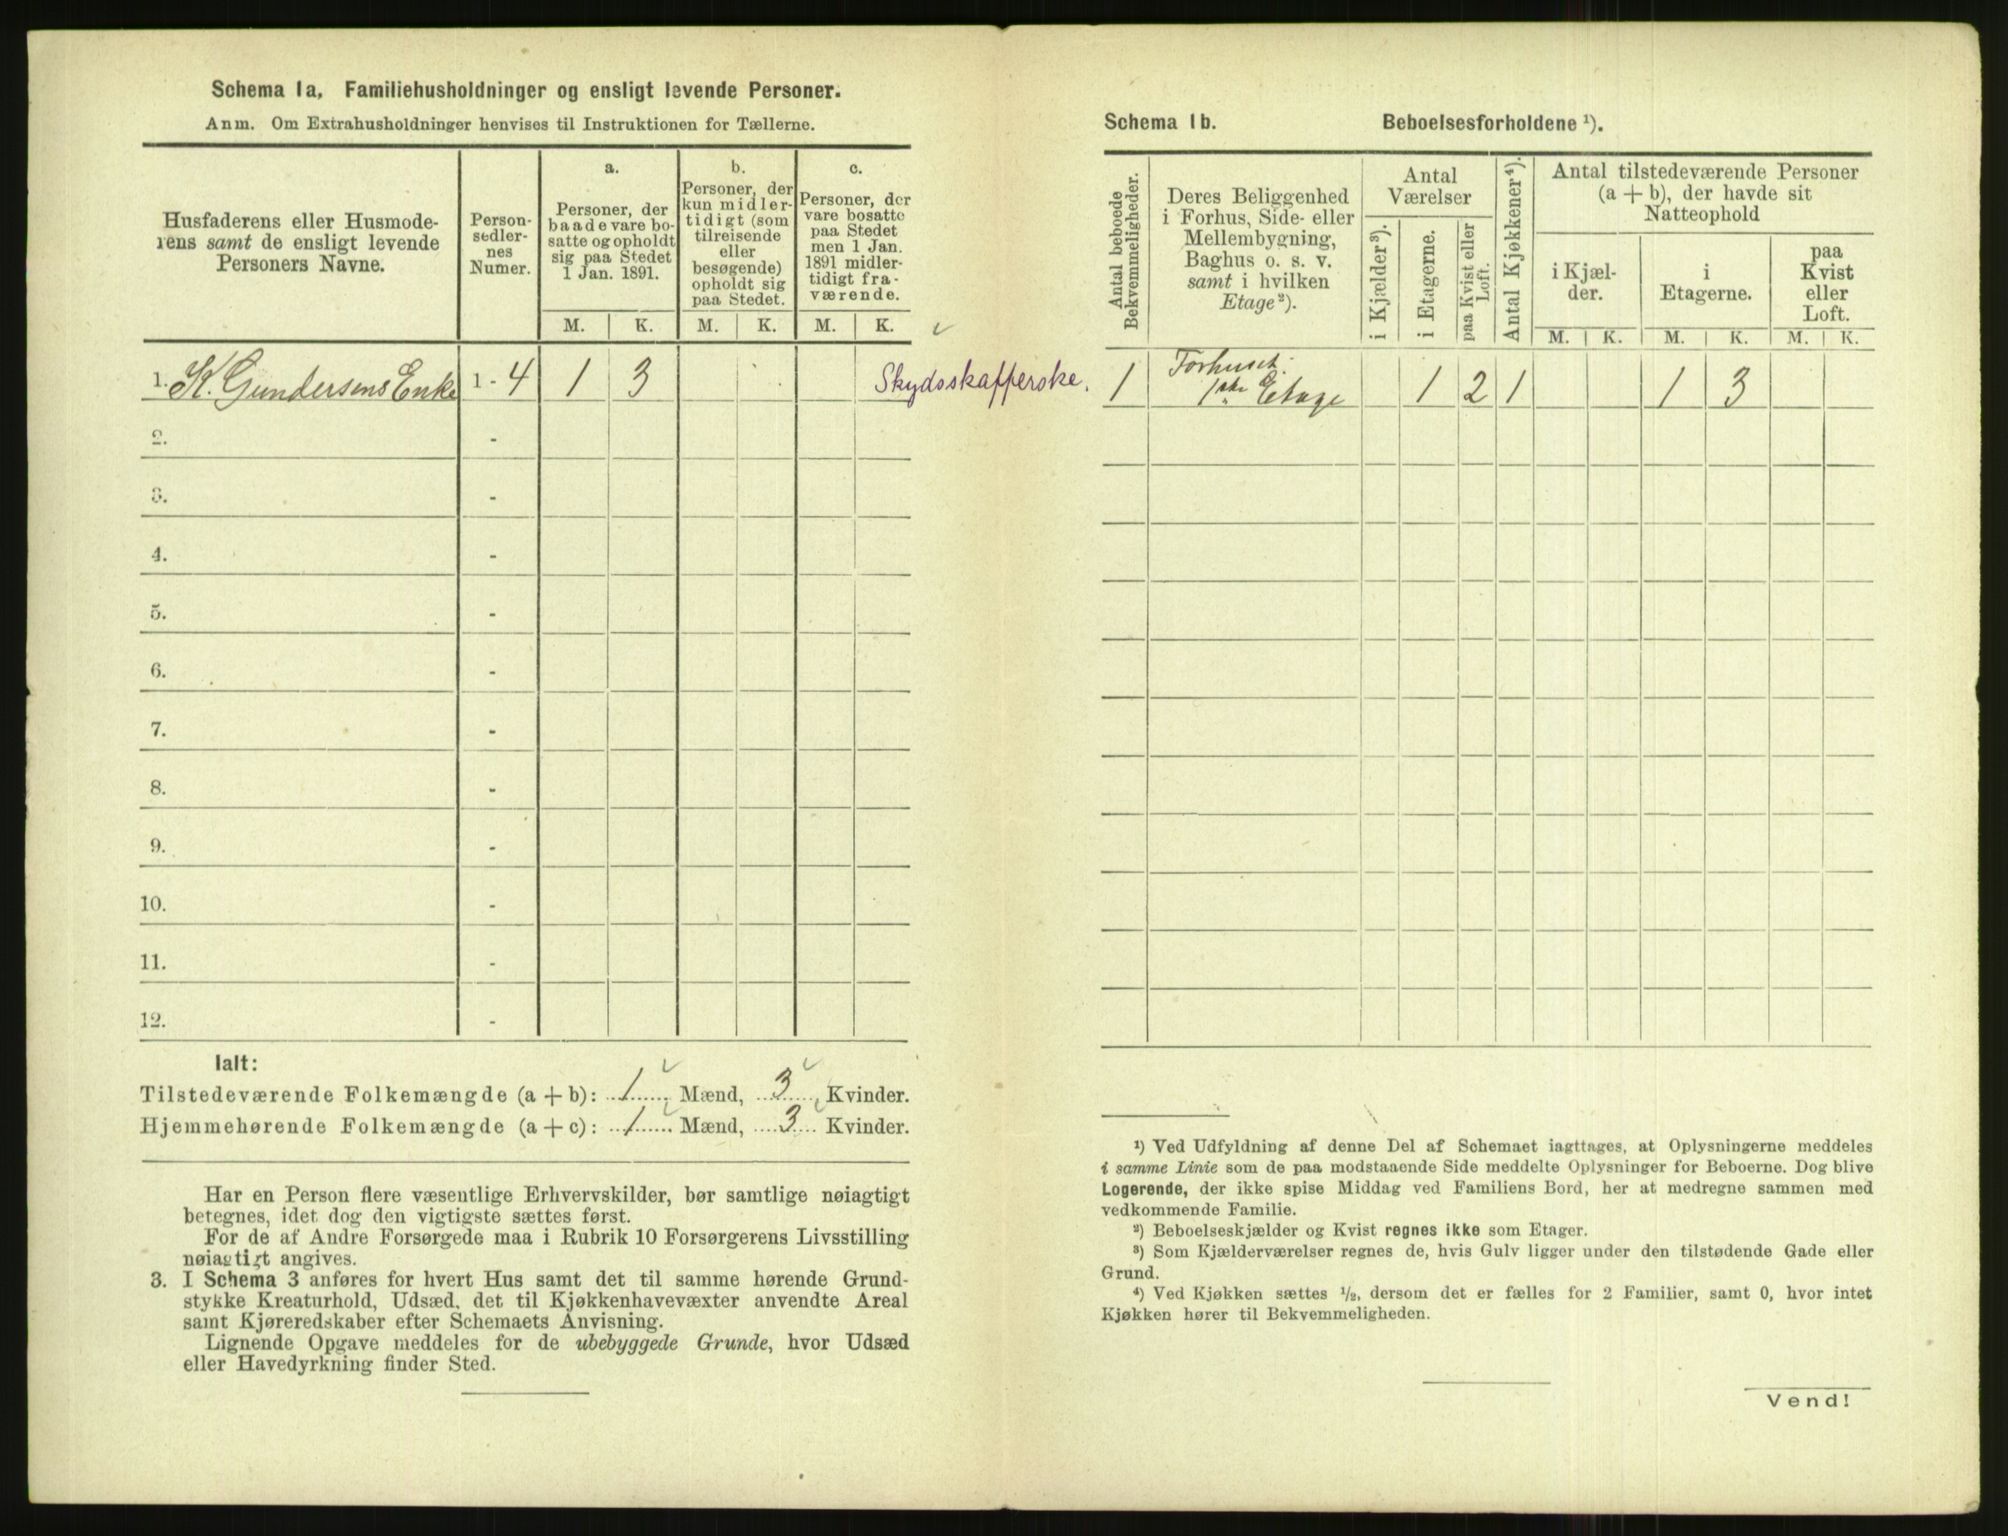 Schema 1a. Familiehusholdninger og ensligt levende Personer.
Anm. Om Extrahusholdninger henvises til Instruktionen for Tællerne.
Husfaderens eller Husmode-
rens samt de ensligt levende
Personers Navne.
Person-
sedler-
nes
Numer.
a.
Personer, der
baade vare bo-
satte og opholdt
sig paa Stedet
1 Jan. 1891.
b.
Personer, der
kun midler-
tidigt (som
tilreisende
eller
besøgende)
opholdt sig
paa Stedet.
c.
Personer, der
vare bosatte
paa Stedet
men 1 Jan.
1891 midler-
tidigt fra-
værende.
M. K. M. K. M. K.
1. K. Gundersens Enke 1 - 4 1 3 Skydsskafferske.
2. -
3. -
4. -
5. -
6. -
7. -
8. -
9. -
10. -
11. -
12. -
Ialt:
Tilstedeværende Folkemængde (a + b): 1 Mænd, 3 Kvinder.
Hjemmehørende Folkemængde (a + c): 1 Mænd, 3 Kvinder.
Har en Person flere væsentlige Erhvervskilder, bør samtlige nøiagtigt
betegnes, idet dog den vigtigste sættes først.
For de af Andre Forsørgede maa i Rubrik 10 Forsørgerens Livsstilling
nøiagtigt angives.
3. I Schema 3 anføres for hvert Hus samt det til samme hørende Grund-
stykke Kreaturhold, Udsæd, det til Kjøkkenhavevæxter anvendte Areal
samt Kjøreredskaber efter Schemaets Anvisning.
Lignende Opgave meddeles for de ubebyggede Grunde, hvor Udsæd
eller Havedyrkning finder Sted.
Schema 1b. Beboelsesforholdene ¹).
Antal beboede
Bekvemmeligheder.
Deres Beliggenhed
i Forhus, Side- eller
Mellembygning,
Baghus o. s. v.
samt i hvilken
Etage²).
Antal
Værelser
i Kjælder³).
i Etagerne.
paa Kvist eller
Loft.
Antal Kjøkkener⁴).
Antal tilstedeværende Personer
(a + b), der havde sit
Natteophold
i Kjæl-
der.
i
Etagerne.
paa
Kvist
eller
Loft.
M. K. M. K. M. K.
1 Forhuset. 1ste Etage 1 2 1 1 3
¹) Ved Udfyldning af denne Del af Schemaet iagttages, at Oplysningerne meddeles
i samme Linie som de paa modstaaende Side meddelte Oplysninger for Beboerne. Dog blive
Logerende, der ikke spise Middag ved Familiens Bord, her at medregne sammen med
vedkommende Familie.
²) Beboelseskjælder og Kvist regnes ikke som Etager.
³) Som Kjælderværelser regnes de, hvis Gulv ligger under den tilstødende Gade eller
Grund.
⁴) Ved Kjøkken sættes ½, dersom det er fælles for 2 Familier, samt 0, hvor intet
Kjøkken hører til Bekvemmeligheden.
Vend!